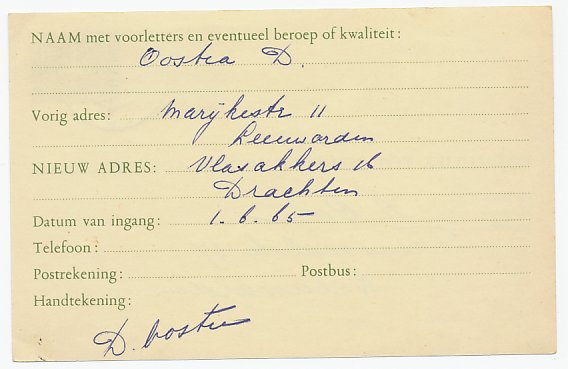 NAAM met voorletters en eventueel beroep of kwaliteit:
Oostra D.
Vorig adres: Marijkestr 11
Leeuwarden
NIEUW ADRES: Vlasakkers 16
Drachten
Datum van ingang: 1.6.65
Telefoon:
Postrekening: Postbus:
Handtekening:
D. Oostra